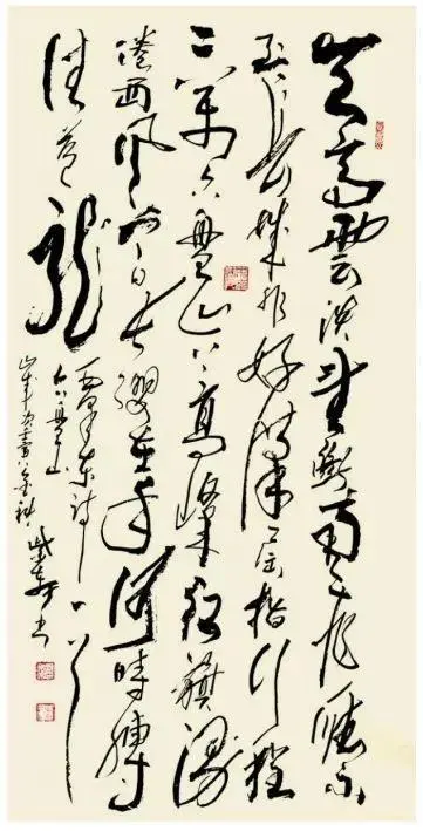 天高雲淡望斷南飛雁不
到長城非好漢屈指行程
二萬六盤山上高峰紅旗漫
捲西風今日長纓在手何時縛
住蒼龍
毛澤東詩
六盤山